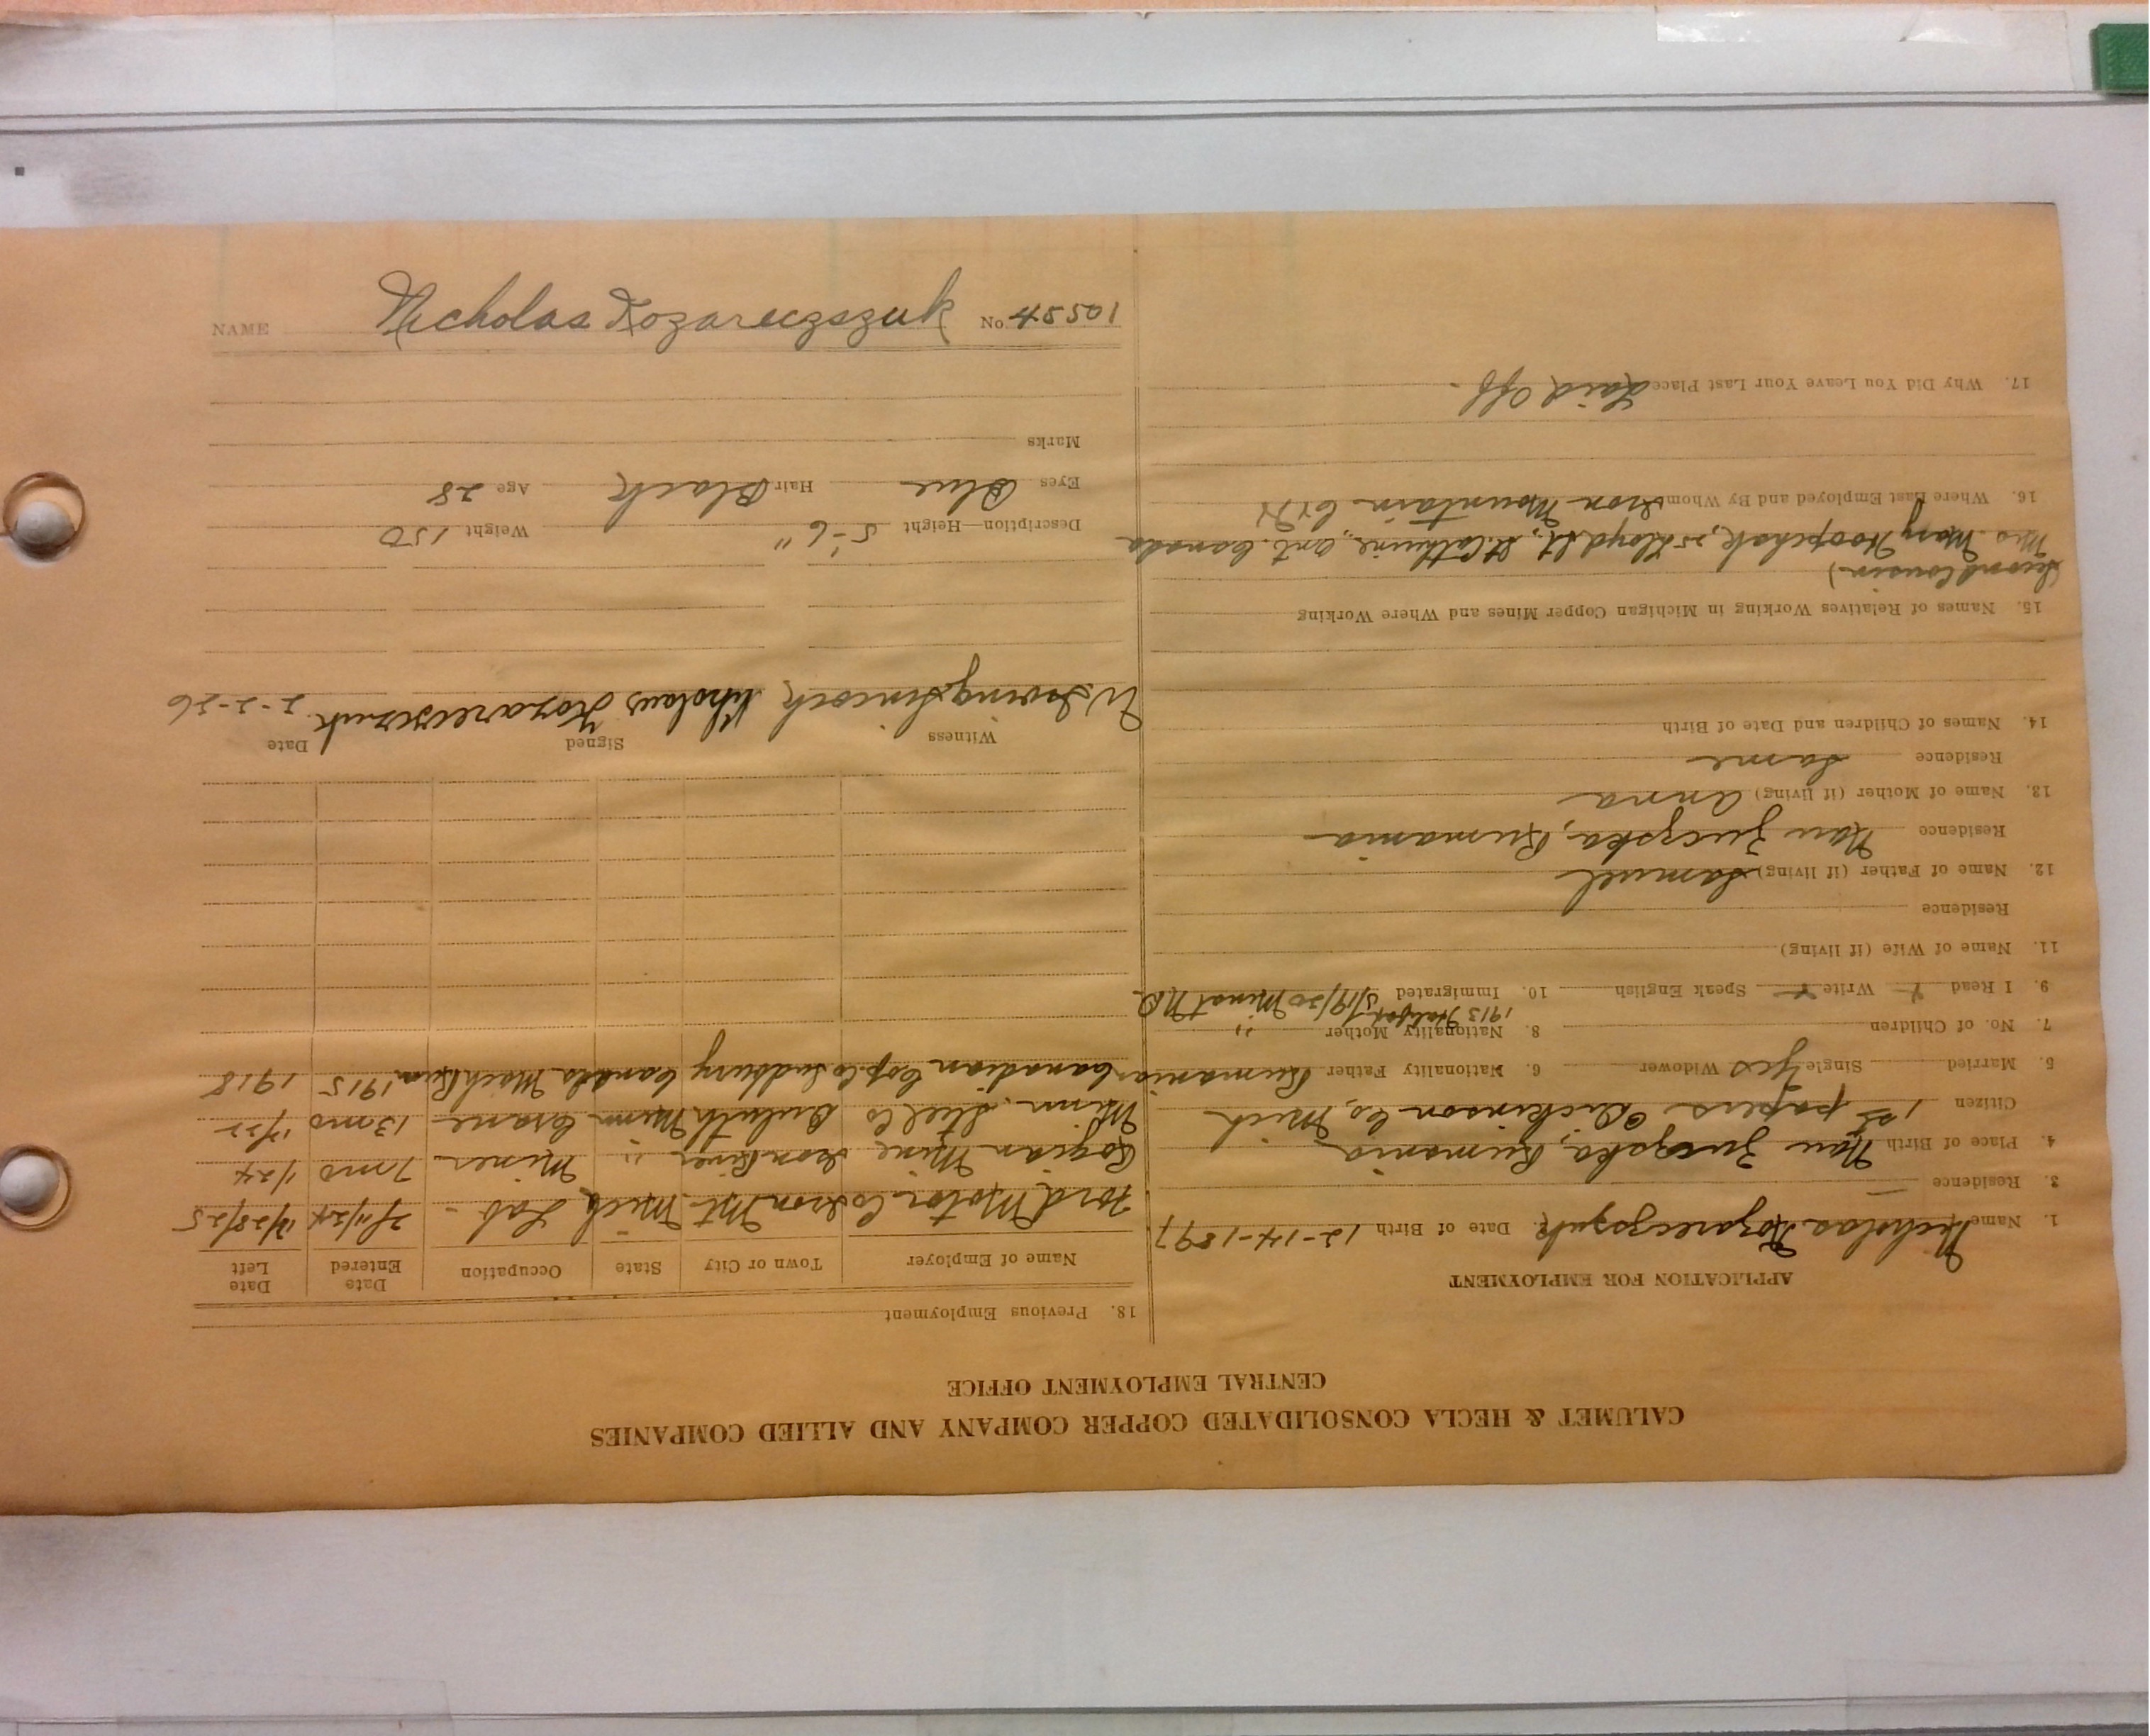 CALUMET & HECLA CONSOLIDATED COPPER COMPANY AND ALLIED COMPANIES
CENTRAL EMPLOYMENT OFFICE
APPLICATION FOR EMPLOYMENT
1. Name Nicholas Kozareczszuk. Date of Birth 12-14-1897
3. Residence
4. Place of Birth Nau Zuczska, Rumania
Citizen 1st papers Dickinson Co, Mich
5. Married Single Yes Widower 6. Nationality Father Rumanian
7. No. of Children 8. Nationality Mother "
1913 Halifax
9. I Read Y Write Y Speak English 10. Immigrated 5/19/20 Minot N.D.
11. Name of Wife (if living)
Residence
12. Name of Father (if living) Samuel
Residence Nau Zuczska, Rumania
13. Name of Mother (if living) Anna
Residence Same
14. Names of Children and Date of Birth
15. Names of Relatives Working in Michigan Copper Mines and Where Working
(Second Cousin)
Mrs Mary 25 Lloyd St., St. Catherine, Ont. Canada
16. Where Last Employed and By Whom Iron Mountain City
17. Why Did You Leave Your Last Place Laid Off.
18. Previous Employment
Name of Employer Town or City State Occupation Date Entered Date Left
Ford Motor Co Iron Mt. Mich Lab. 2/11/24 12/28/25
Mine Iron River " Miner 7 mo 1/24
Minn. Steel Co Duluth Minn Crane 13 mo
Canadian Cop. Co Sudbury Canada 1915 1918
Witness Signed Date
W. Irving Nikolaus Kozareczszuk. 2-2-26
Description—Height 5'-6" Weight 150
Eyes Blue Hair Black Age 28
Marks
NAME Nicholas Kozareczszuk No. 48501